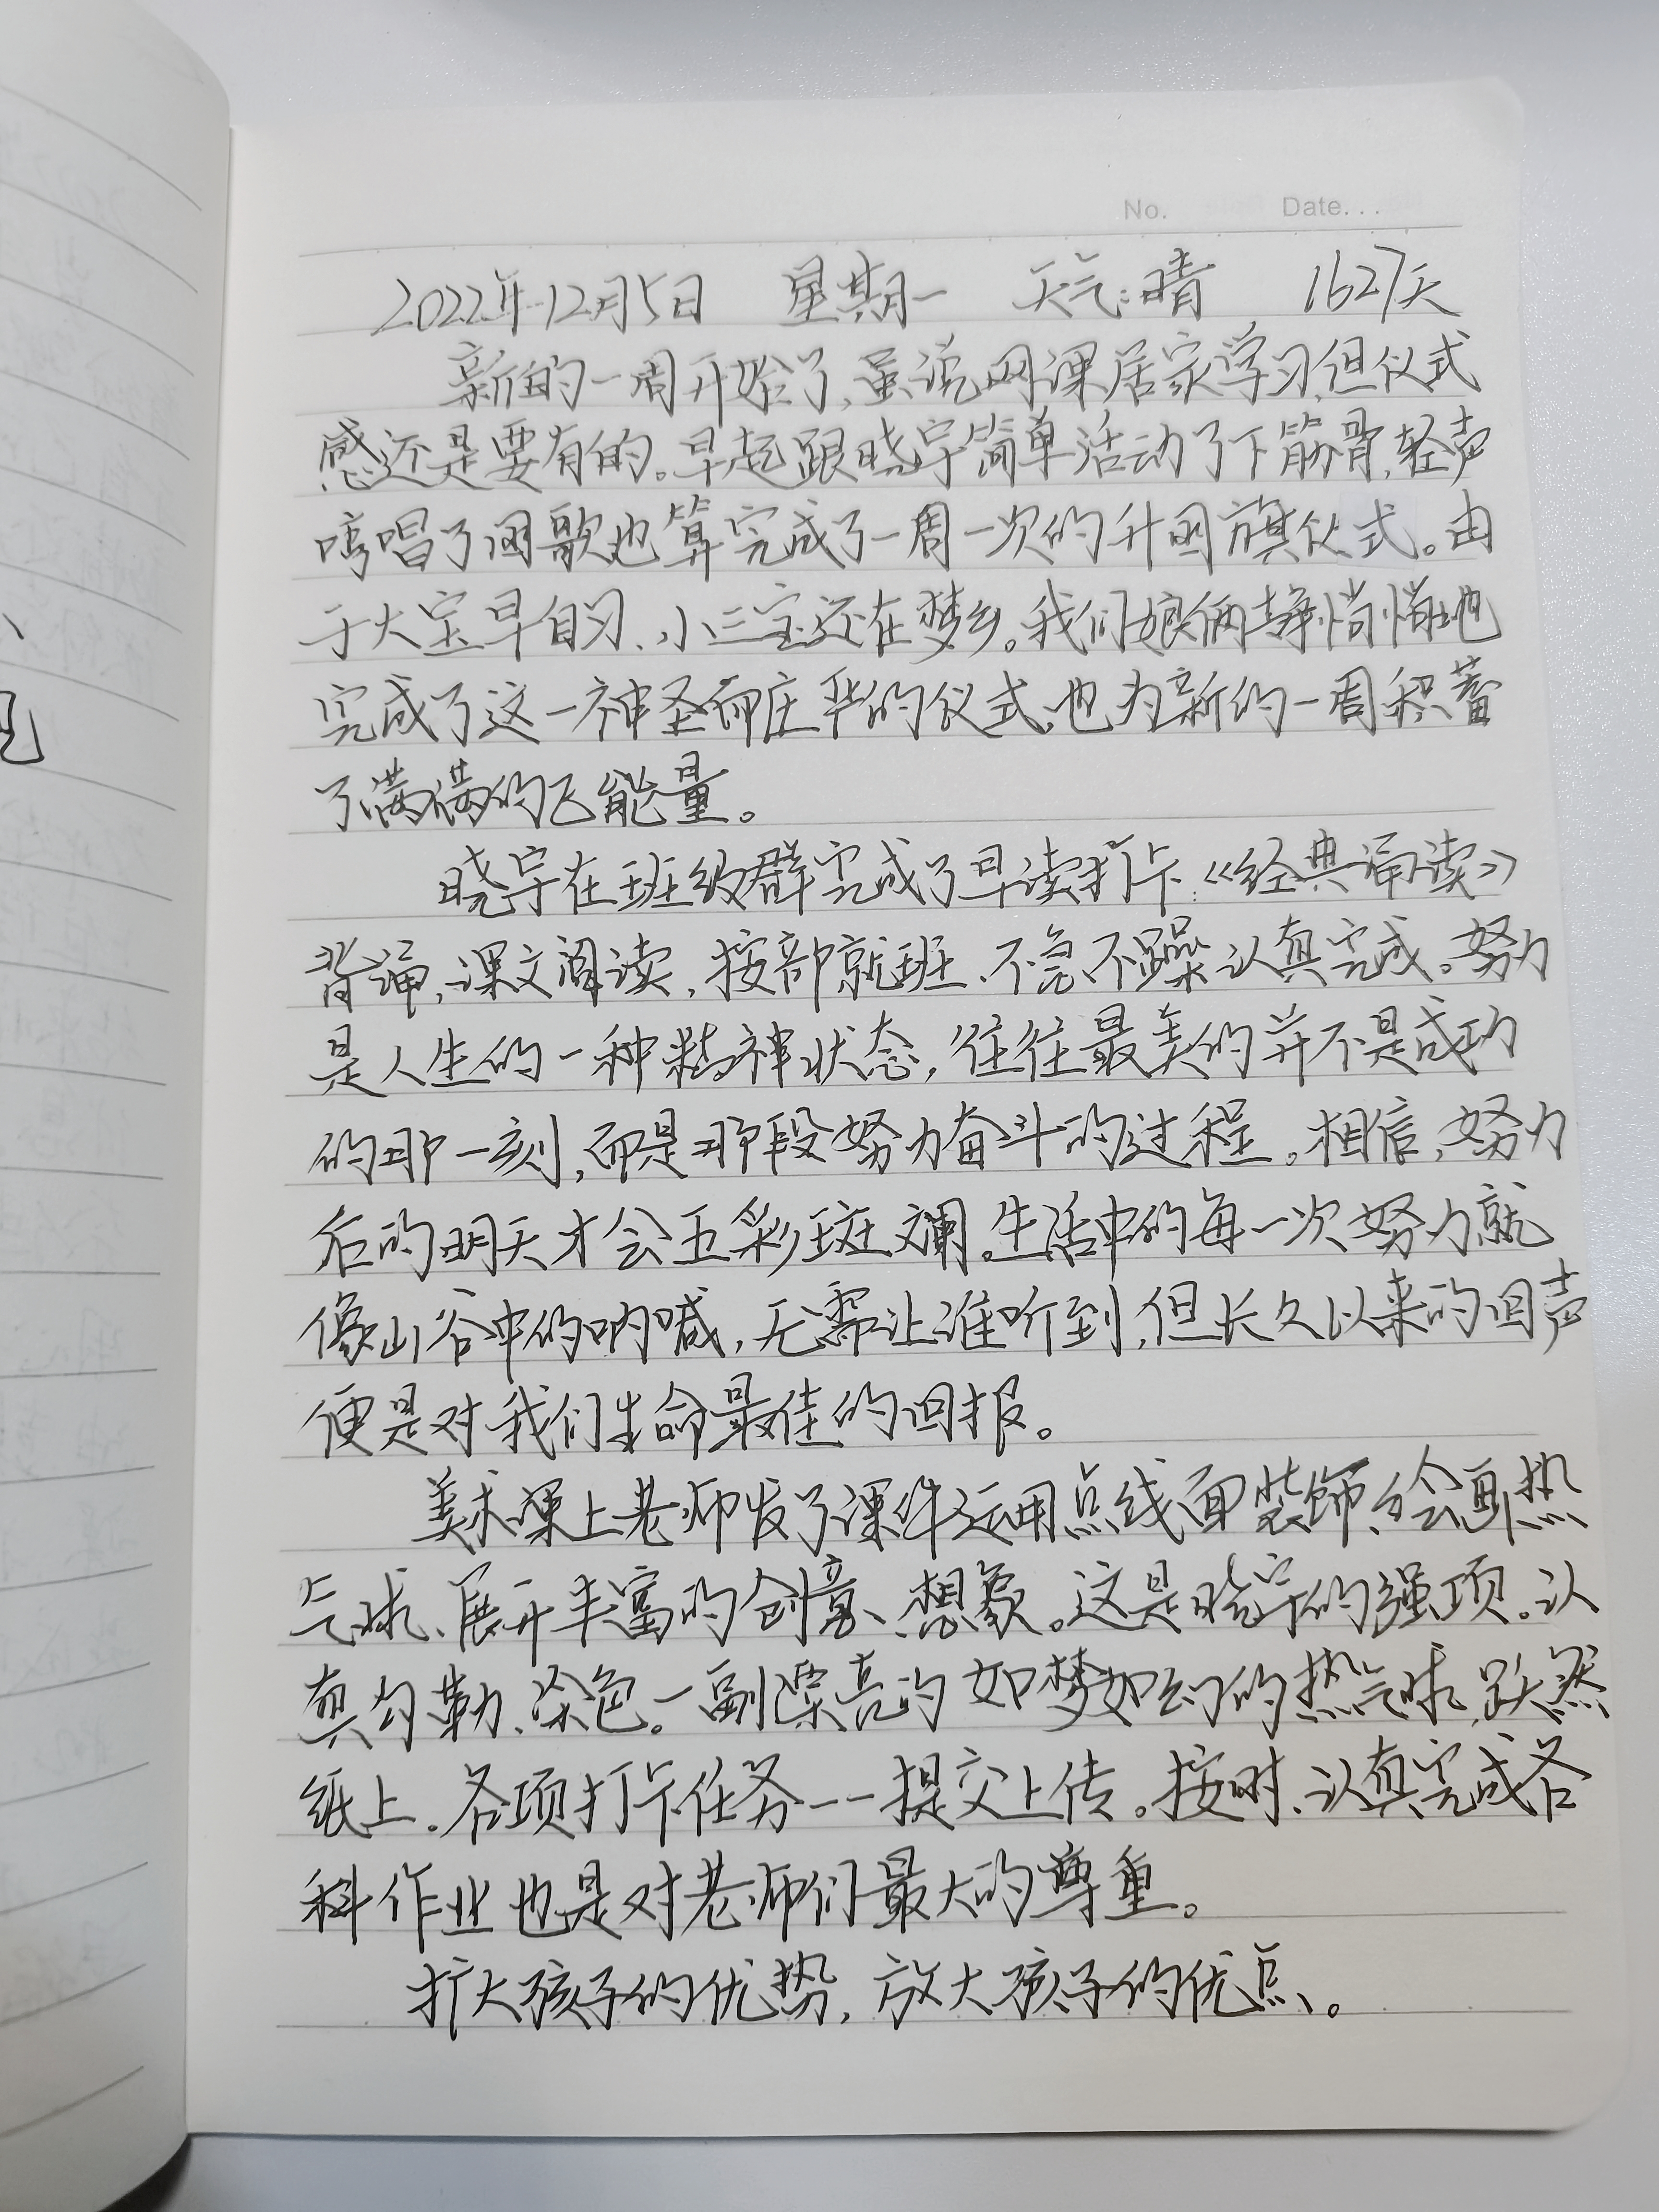 No. Date...
2022年12月5日 星期一 天气:晴 1627天
新的一周开始了,虽说网课居家学习,但仪式
感还是要有的。早起跟晓宇简单活动了下筋骨,轻声
哼唱了国歌也算完成了一周一次的升国旗仪式。由
于大宝早自习、小三宝还在梦乡。我们娘俩静悄悄地
完成了这一神圣而庄严的仪式,也为新的一周积蓄
了满满的正能量。
晓宇在班级群完成了早读打卡:《经典诵读》
背诵,课文阅读,按部就班、不急不躁认真完成。努力
是人生的一种精神状态,往往最美的并不是成功
的那一刻,而是那段努力奋斗的过程。相信,努力
后的明天才会五彩斑斓。生活中的每一次努力就
像山谷中的呐喊,无需让谁听到,但长久以来的回声
便是对我们生命最佳的回报。
美术课上老师发了课件运用点线面装饰、绘画热
气球、展开丰富的创意、想象。这是晓宇的强项。认
真勾勒、染色。一副漂亮的如梦如幻的热气球,跃然
纸上。各项打卡任务一一提交上传。按时、认真完成各
科作业也是对老师们最大的尊重。
扩大孩子的优势,放大孩子的优点。